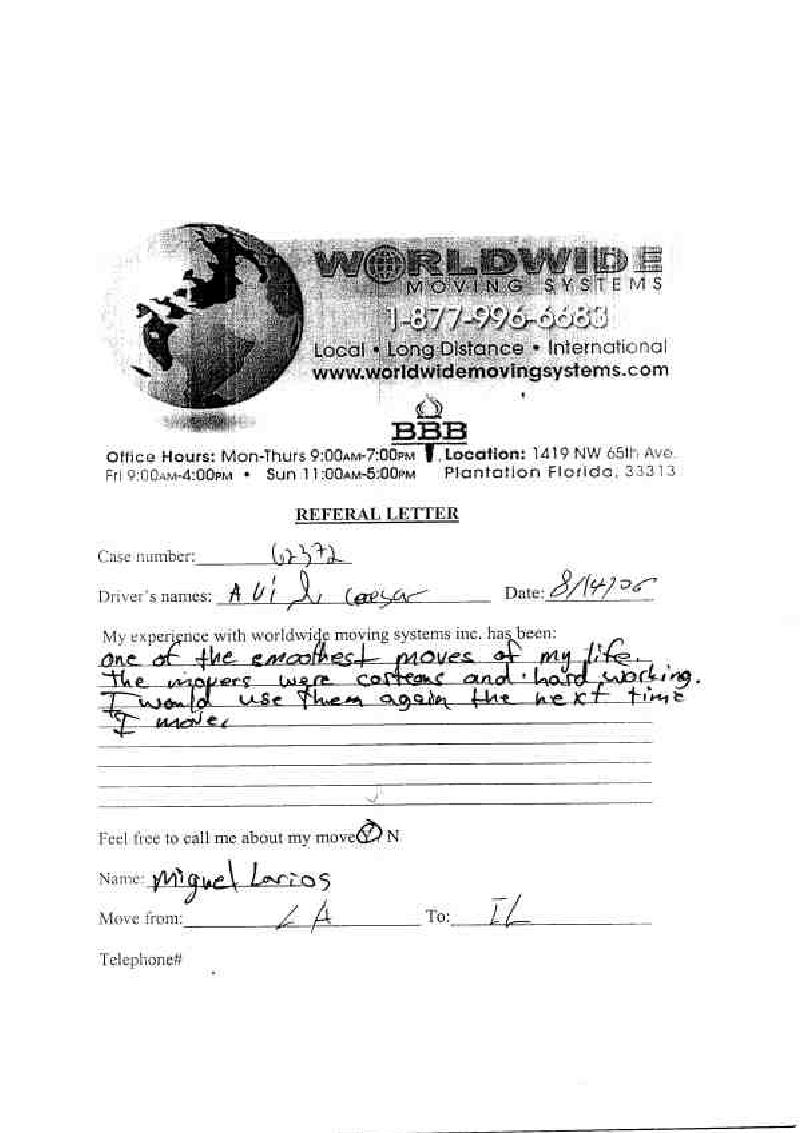 WORLDWIDE
MOVING SYSTEMS
1-877-996-6683
Local • Long Distance • International
www.worldwidemovingsystems.com
BBB
Office Hours: Mon-Thurs 9:00AM-7:00PM
Fri 9:00AM-4:00PM • Sun 11:00AM-5:00PM
Location: 1419 NW 65th Ave.
Plantation Florida, 33313
REFERAL LETTER
Case number: 62372
Driver's names: AVI & Caesar Date: 8/14/06
My experience with worldwide moving systems inc. has been:
one of the smoothest moves of my life.
The movers were corteous and hard working.
I would use them again the next time
I move.
Feel free to call me about my move Y N
Name: Miguel Larios
Move from: LA To: IL
Telephone#